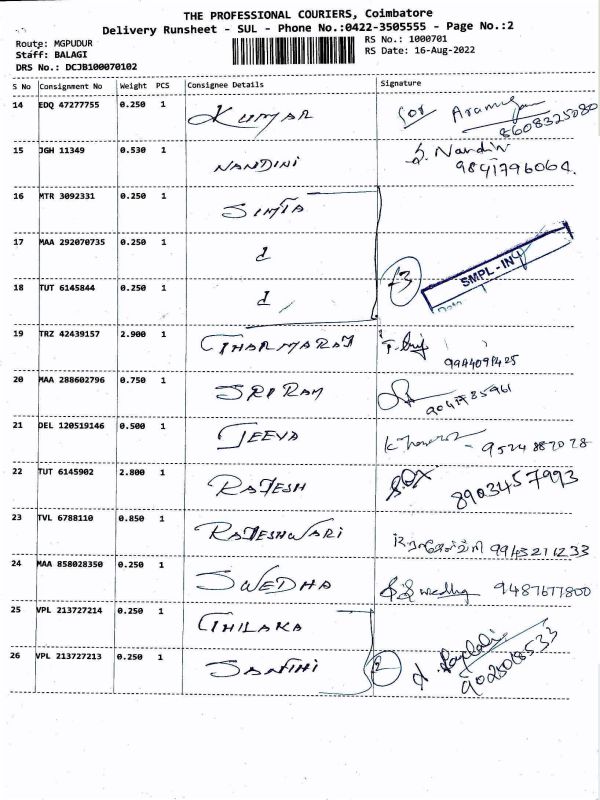 THE PROFESSIONAL COURIERS, Coimbatore
Delivery Runsheet - SUL - Phone No.:0422-3505555 - Page No.:2
Route: MGPUDUR RS No.: 1000701
Staff: BALAGI RS Date: 16-Aug-2022
DRS No.: DCJB100070102
S No Consignment No Weight PCS Consignee Details Signature
14 EDQ 47277755 0.250 1 KUMAR 8608325080
15 JGH 11349 0.530 1 NANDINI S. Nandin 9841796064.
16 MTR 3092331 0.250 1
17 MAA 292070735 0.250 1 d
18 TUT 6145844 0.250 1 d
3
SMPL-IN
19 TRZ 42439157 2.900 1 THARMARAJ
20 MAA 288602796 0.750 1 SRIRAM
21 DEL 120519146 0.500 1 JEEVA
22 TUT 6145902 2.800 1 RAJESH 8903457993
23 TVL 6788110 0.850 1 RAJESHWARI 9943211233
24 MAA 858028350 0.250 1 SWEDHA 9487677800
25 VPL 213727214 0.250 1 THILAKA
26 VPL 213727213 0.250 1 SANTHI 2